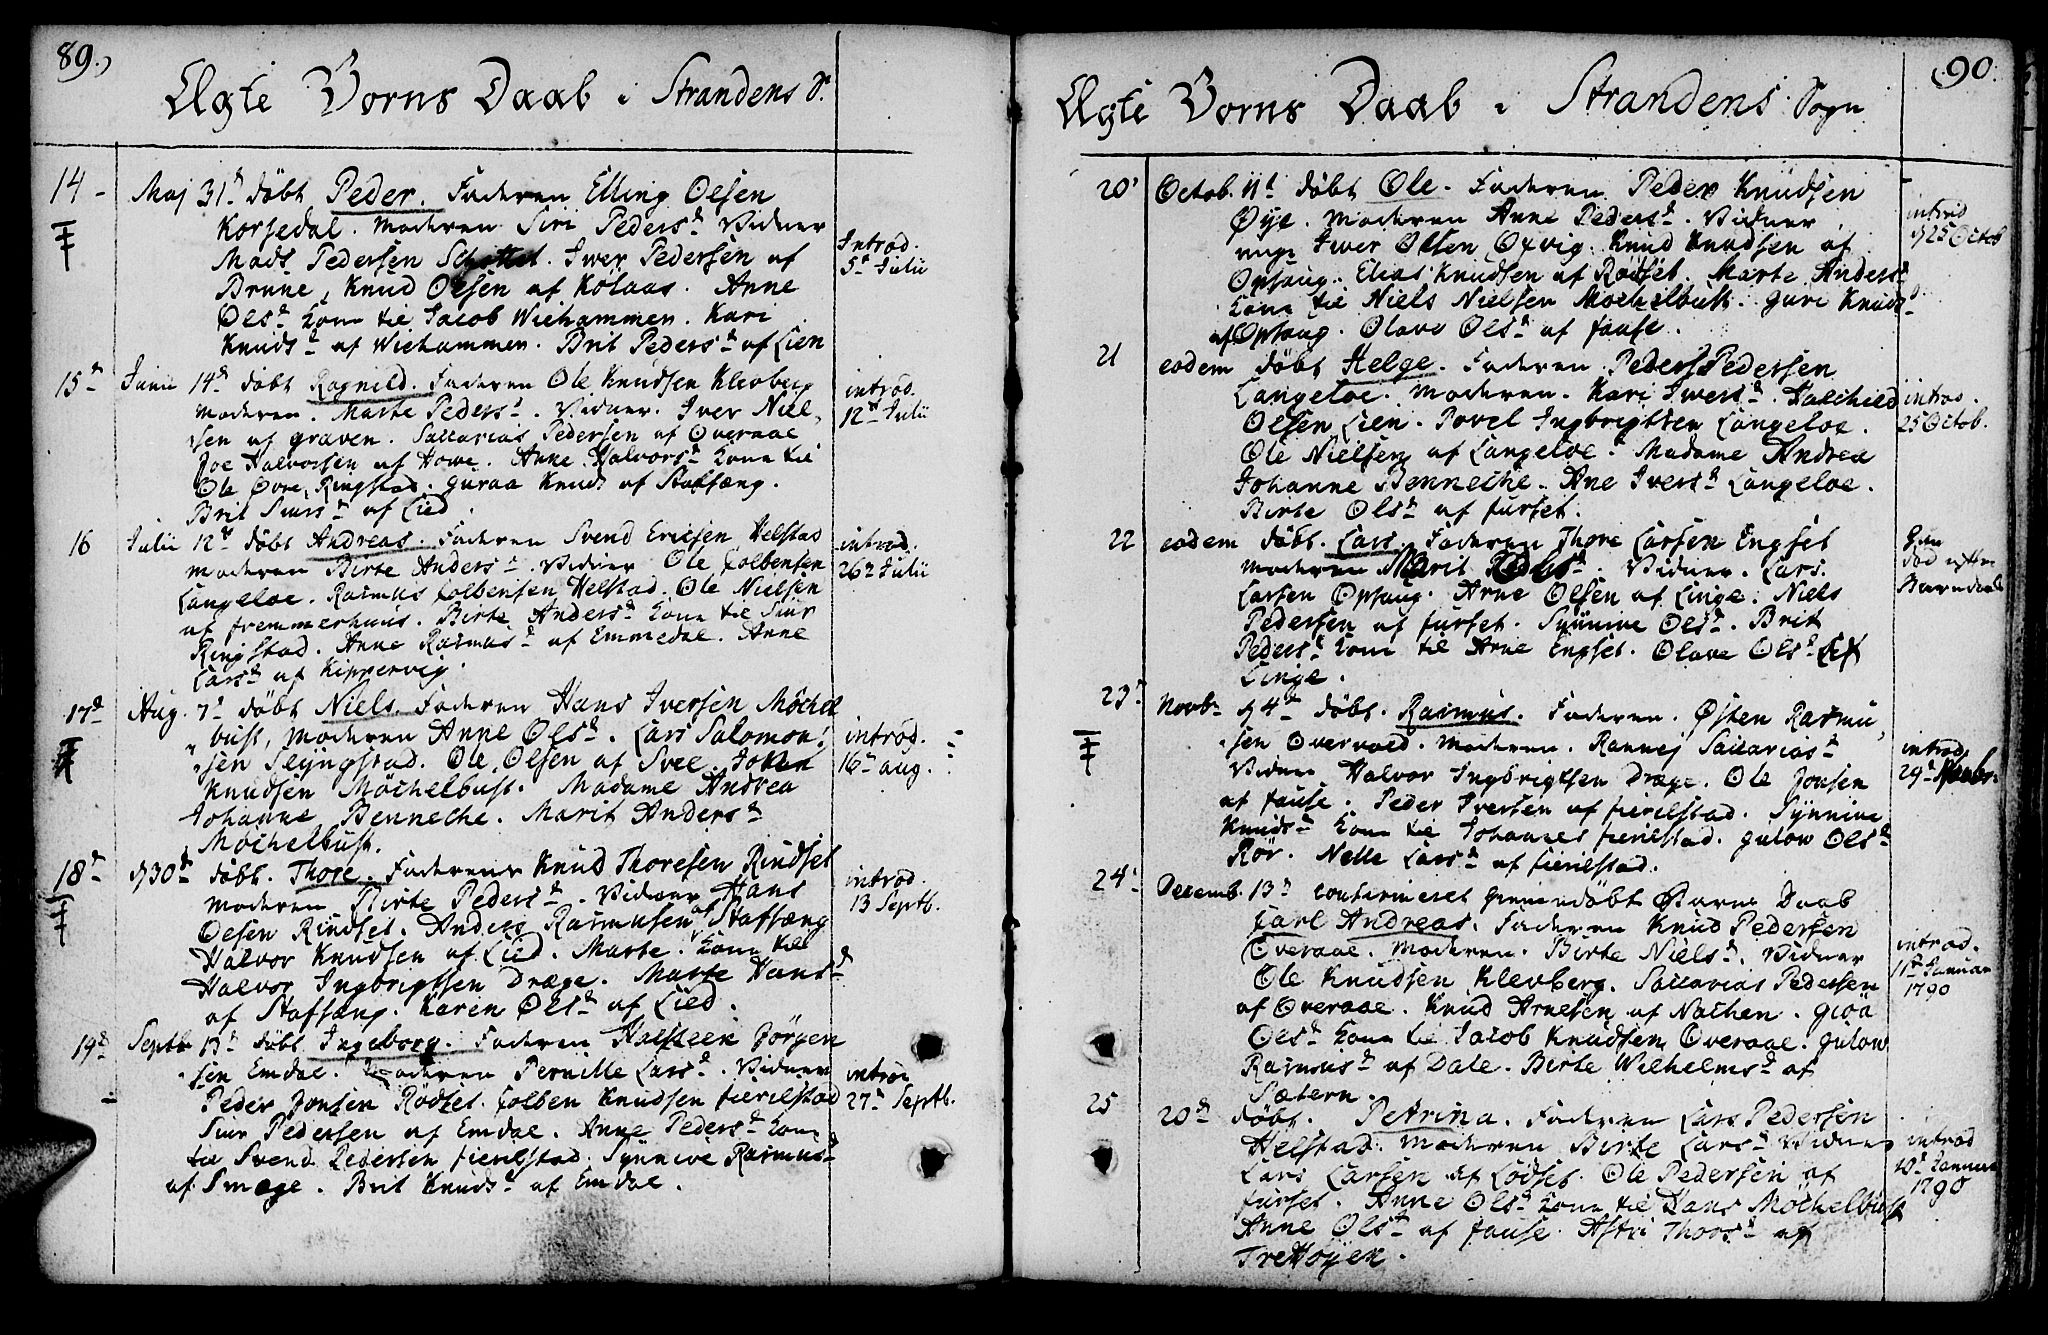 89.)
Ægte Börns Daab i Strandens S.
14 - Maj 31d döbt Peder. Faderen Elling Olsen
Korsedal. Moderen Siri Pedersd. Vidner
Mads Pedersen Schottet. Iver Pedersen af
Brune, Knud Olsen af Kolaas. Anne
Olsd Kone til Jacob Wiehammen. Kari
Knudsd af Wiehammen. Brit Pedersd af Lien
Introd.
5d Julii
15d Junii 14d döbt Ragnild. Faderen Ole Knudsen Klevberg
Moderen. Marte Pedersd. Vidner. Iver Niel,
sen af Graven. Saccarias Pedersen af Overaae
Joe Halvorsen af Howe. Anne Halvorsd Kone til
Ole Övre Ringstad. Guraa Knuds af Stafsæng.
Brit Siursd af Lied.
introd.
12d Julii
16 Julii 12d döbt Andreas. Faderen Svend Ericsen Helstad
Moderen Birte Andersd. Vidner Ole Colbensen
Langeloe. Rasmus Colbensen Helstad. Ole Nielsen
af Fremmerhuus. Birte Andersd Kone til Siur
Ringstad. Anne Rasmusd af Emmedal. Anne
Larsd af Kippervig.
introd.
26d Julii
17d Aug. 7d döbt Niels. Faderen Hans Iversen Möchel
bust, Moderen Anne Olsd. Lars Salomon,
sen Slyngstad. Ole Olsen af Svee. Johan
Knudsen Möchelbust. Madame Andrea
Johanne Benneche. Marit Andersd
Möchelbust.
introd.
16d aug.
18d d 30d döbt. Thore. Faderen Knud Thoresen Rindset
Moderen Birte Pedersd. Vidner Hans
Olsen Rindset. Anders Rasmusen af Stafsæng
Halvor Knudsen af Lied. Marte. Kone til
Halvor Ingbrigtsen Dræge. Marte Hansd
af Stafsæng. Karen Olsd af Lied.
introd.
13 Septb.
19d Septb 13d döbt Ingeborg. Faderen Halsteen Jörgen
sen Emdal. Moderen Pernille Larsd. Vidner
Peder Jonsen Rödset. Colben Knudsen Fierilstad
Siur Pedersen af Emdal. Anne Pedersd Kone
til Svend Pedersen Fierilstad. Synnive Rasmusd
af Smoge. Brit Knudsd af Emdal.
introd
27d Septb.
90.
Ægte Börns Daab i Strandens Sogn
20 Octob. 11d döbt Ole. Faderen Peder Knudsen
Øye. Moderen Anne Pedersd. Vidner
unge Iver Olsen Oxvig. Knud Knudsen af
Opsaug. Elias Knudsen af Rödset. Marte Andersd
Kone til Niels Nielsen Möchelbust. Guri Knudsd
af Opsaug. Olave Olsd af Fause.
introd
d 25 Octob
21 eodem döbt Helge. Faderen Peders Pedersen
Langeloe. Moderen. Kari Iversd. Halchild
Olsen Lien. Povel Ingbrigtsen Langeloe.
Ole Nielsen af Langeloe. Madame Andrea
Johanne Benneche. Ane Iversd Langeloe.
Birte Olsd af Furset.
introd.
25 Octob.
22 eodem döbt. Lars. Faderen Thore Larsen Engset
Moderen Marit Pedersd. Vidner. Lars
Larsen Opsaug. Arne Olsen af Linge. Niels
Pedersen af Furset. Synnive Olsd. Brit
Pedersd Kone til Arne Engset. Olave Olsd af
Linge.
död efter
23 Novb. d 4d döbt. Rasmus. Faderen. Østen Rasmu,
sen Overvold. Moderen. Rannej Saccariasd
Vidner Halvor Ingbrigtsen Dræge. Ole Jonsen
af Fause. Peder Iversen af Fierilstad. Synnive
Knudsd Kone til Johannes Fierilstad. Gulow Olsd
Rör. Nelle Larsd af Fierilstad.
introd.
29d Novbr.
24 Decemb. 13d confirmeret hiemmedöbt Barns Daab
Carl Andreas. Faderen Knud Pedersen
Overaae. Moderen. Birte Nielsd. Vidner
Ole Knudsen Klevberg. Saccarias Pedersen
af Overaae. Knud Arnesen af Nachen. Gioa
Olsd Kone til Jacob Knudsen Overaae. Gulow
Rasmusd af Dale. Birte Wilhelmsd af
Sætern.
introd.
11d Januar
1790
25 20d döbt. Petrina. Faderen Lars Pedersen
Helstad. Moderen Birte Larsd Vidner
Lars Larsen af Lödset. Ole Pedersen af
Furset. Anne Olsd Kone til Hans Möchelbust
Anne Olsd af Fause. Astri Thoesd af
Trethöyen.
introd
10d Januar
1790